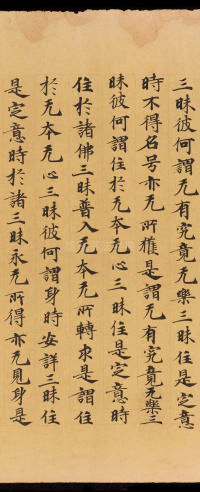 三昧彼何謂无有究竟无樂三昧住是定意
時不得名号亦无所獲是謂无有究竟无樂三
昧彼何謂住於无本无心三昧住是定意時
住於諸佛三昧普入无本无所轉求是謂住
於无本无心三昧彼何謂身時安詳三昧住
是定意時於諸三昧永无所得亦无見身是